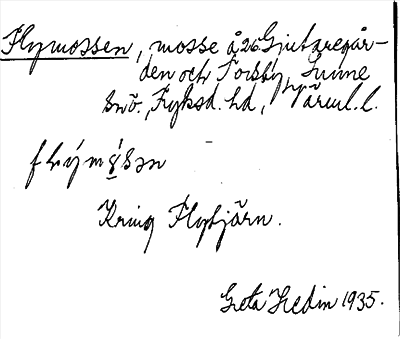 Flymossen, mosse å 26 Gjutaregår-
den och Torsby, Sunne
snö., Fryksd. hd, Värml. l.
flýmɔ̀sən
Kring Flytjärn.
Greta Hedin 1935.